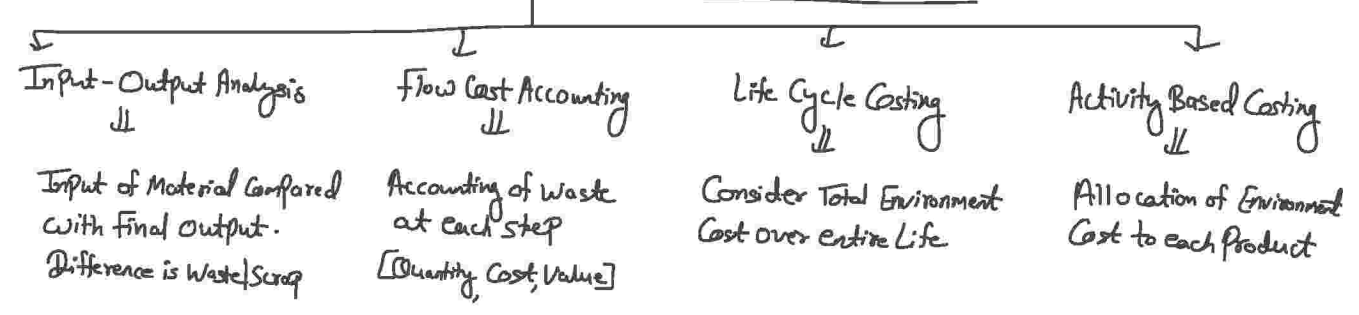 Input-Output Analysis
Input of Material Compared
with final output.
Difference is Waste/Scrap
Flow Cost Accounting
Accounting of waste
at each step
[Quantity, Cost, Value]
Life Cycle Costing
Consider Total Environment
Cost over entire Life
Activity Based Costing
Allocation of Environment
Cost to each Product